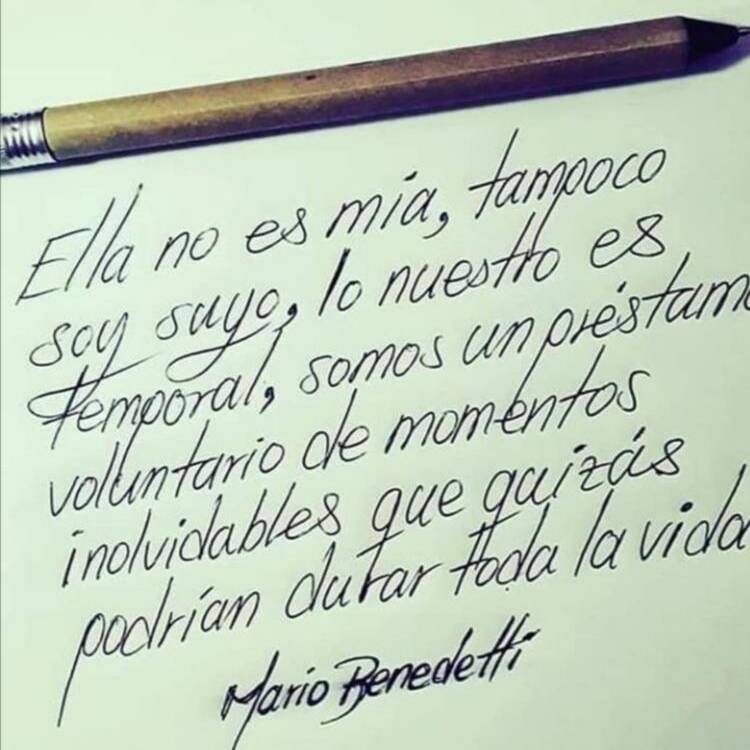 Ella no es mía, tampoco
soy suyo, lo nuestro es
temporal, somos un préstam
voluntario de momentos
inolvidables que quizás
podrían durar toda la vida
Mario Benedetti